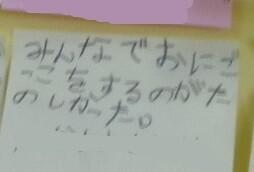 みんなでおにご
っこをするのがた
のしかった。